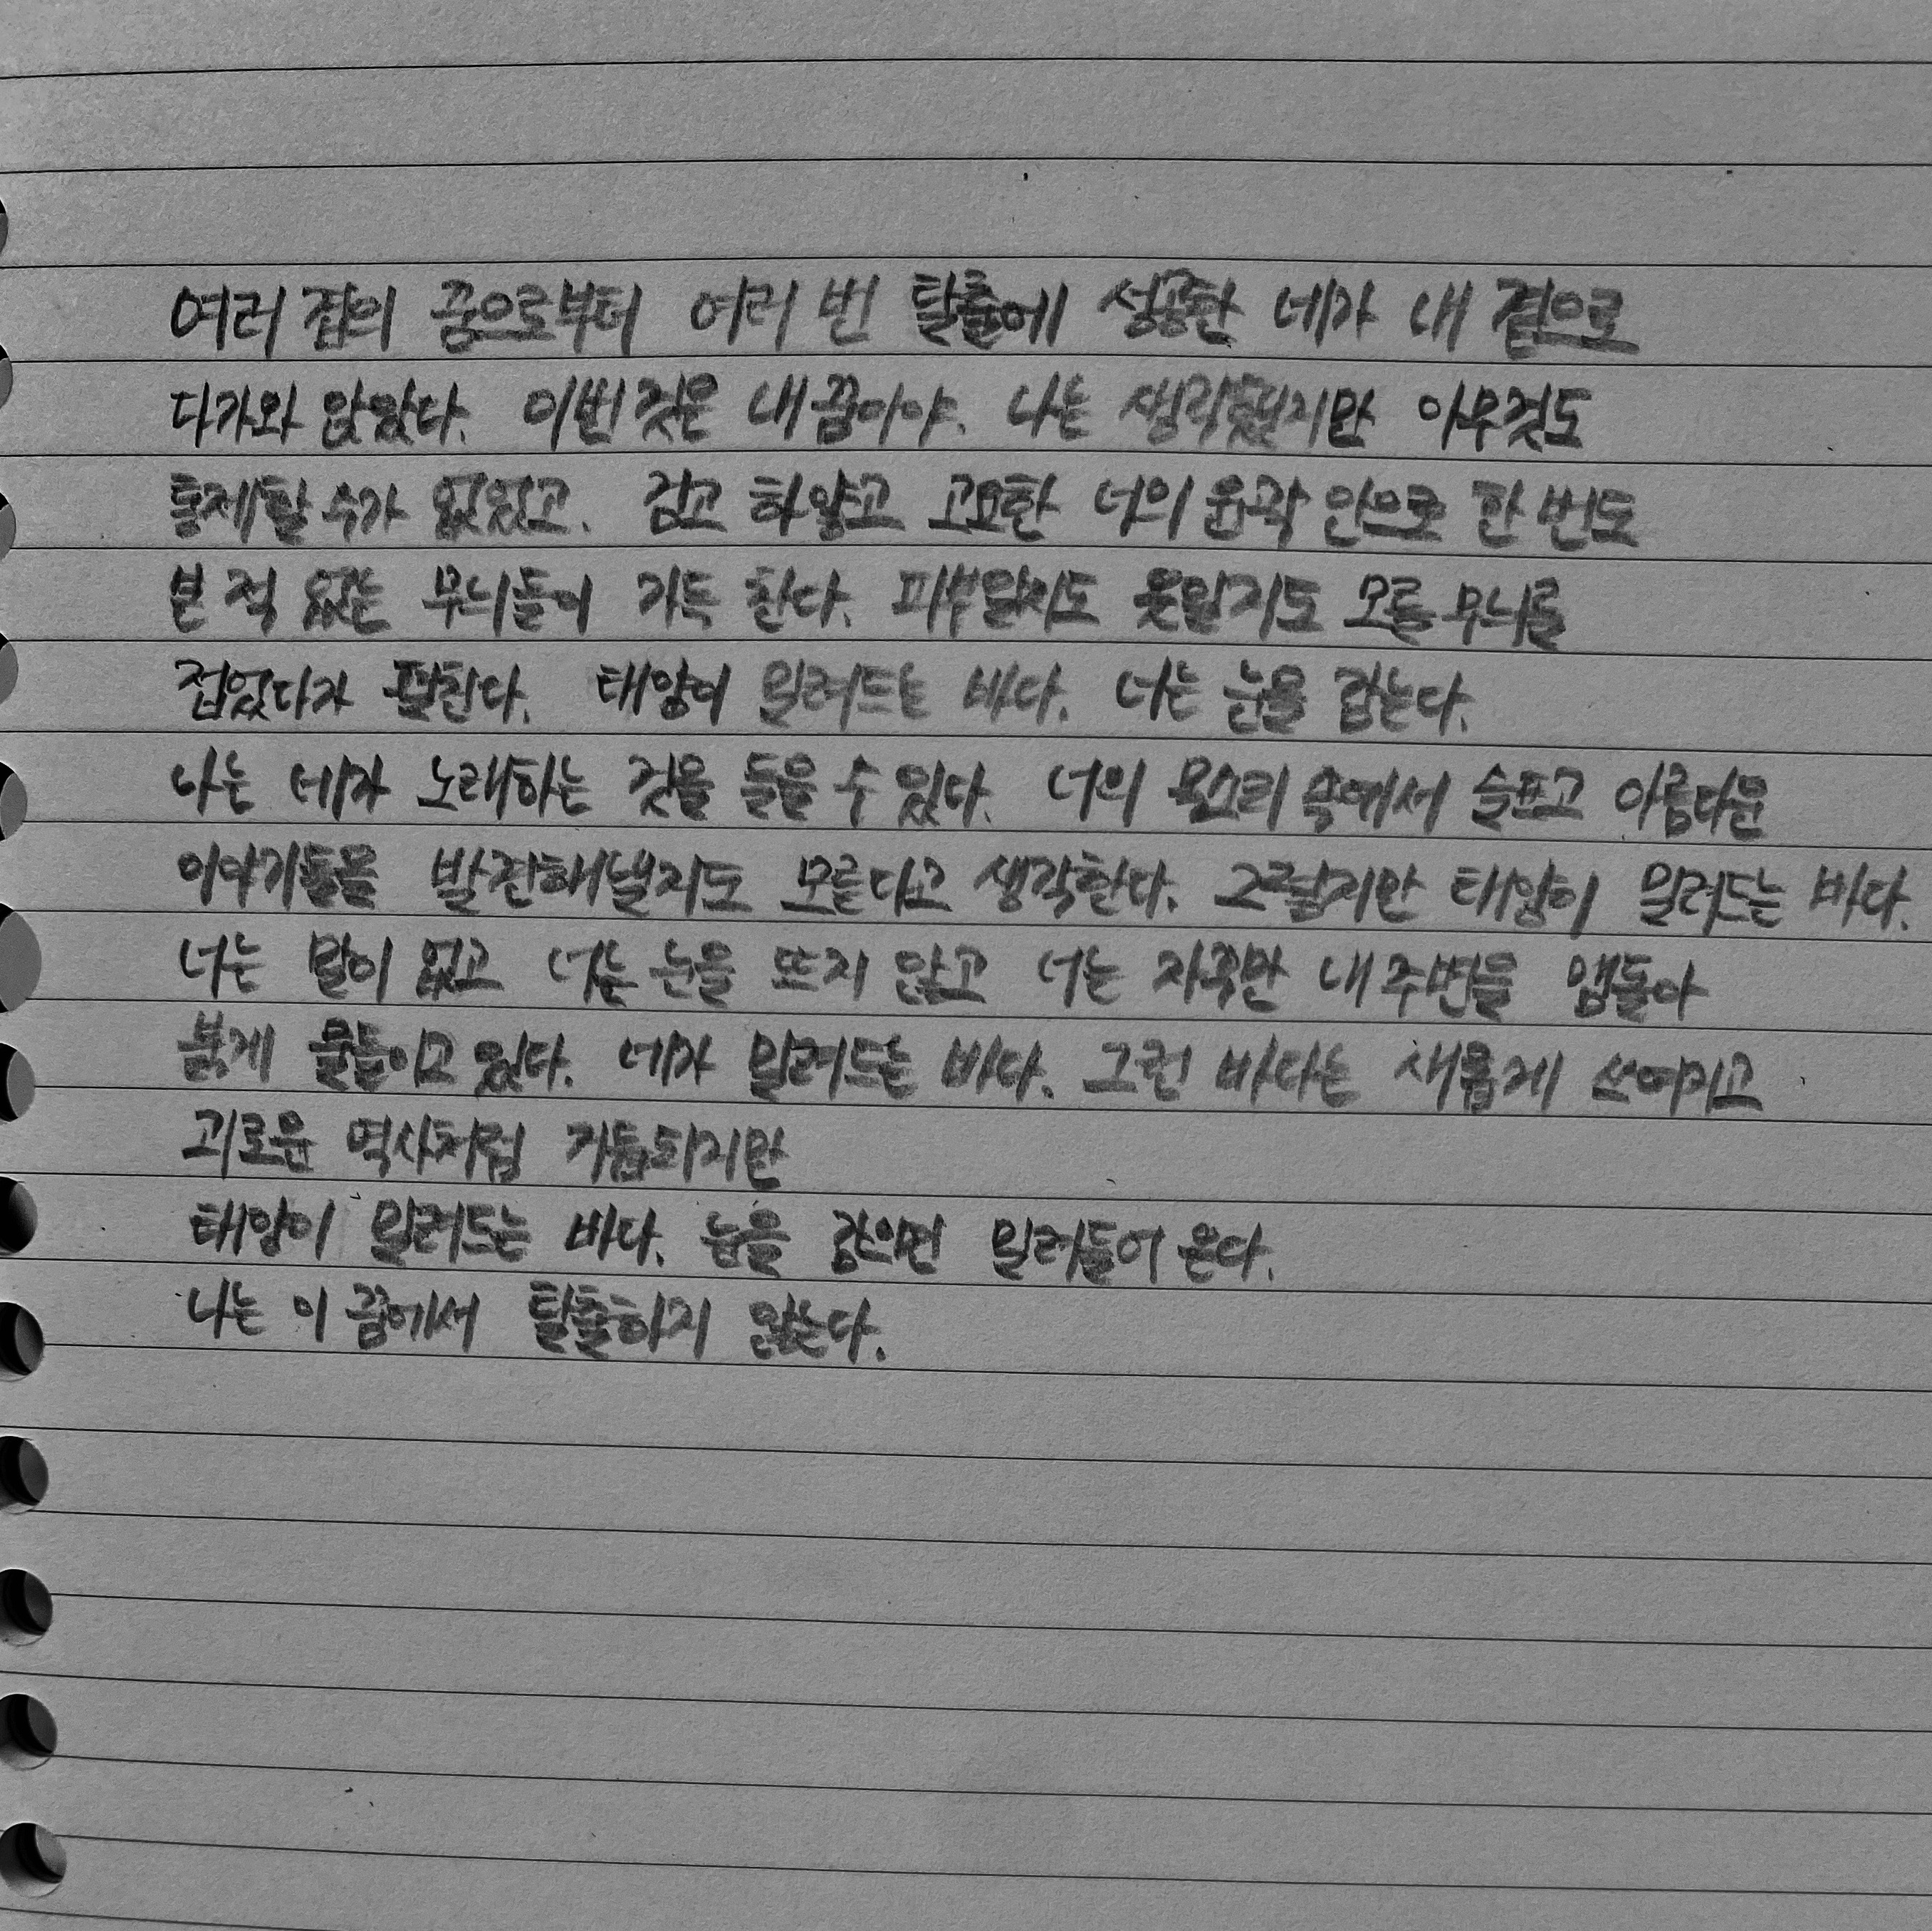 여러 겹의 꿈으로부터 여러 번 탈출에 성공한 네가 내 곁으로
다가와 앉았다. 이번 것은 내 꿈이야. 나는 생각했지만 아무것도
통제할 수가 없었고. 검고 하얗고 고요한 너의 윤곽 안으로 한 번도
본 적 없는 무늬들이 가득 찬다. 피부일지도 옷일지도 모를 무늬를
접었다가 펼친다. 태양이 밀려드는 바다. 너는 눈을 감는다.
나는 네가 노래하는 것을 들을 수 있다. 너의 목소리 속에서 슬프고 아름다운
이야기들을 발견해낼지도 모른다고 생각한다. 그렇지만 태양이 밀려드는 바다.
너는 말이 없고 너는 눈을 뜨지 않고 너는 자꾸만 내 주변을 맴돌아
붉게 물들이고 있다. 네가 밀려드는 바다. 그런 바다는 새롭게 쓰여지고
괴로운 역사처럼 거듭되지만
태양이 밀려드는 바다. 눈을 감으면 밀려들어 온다.
나는 이 꿈에서 탈출하지 않는다.